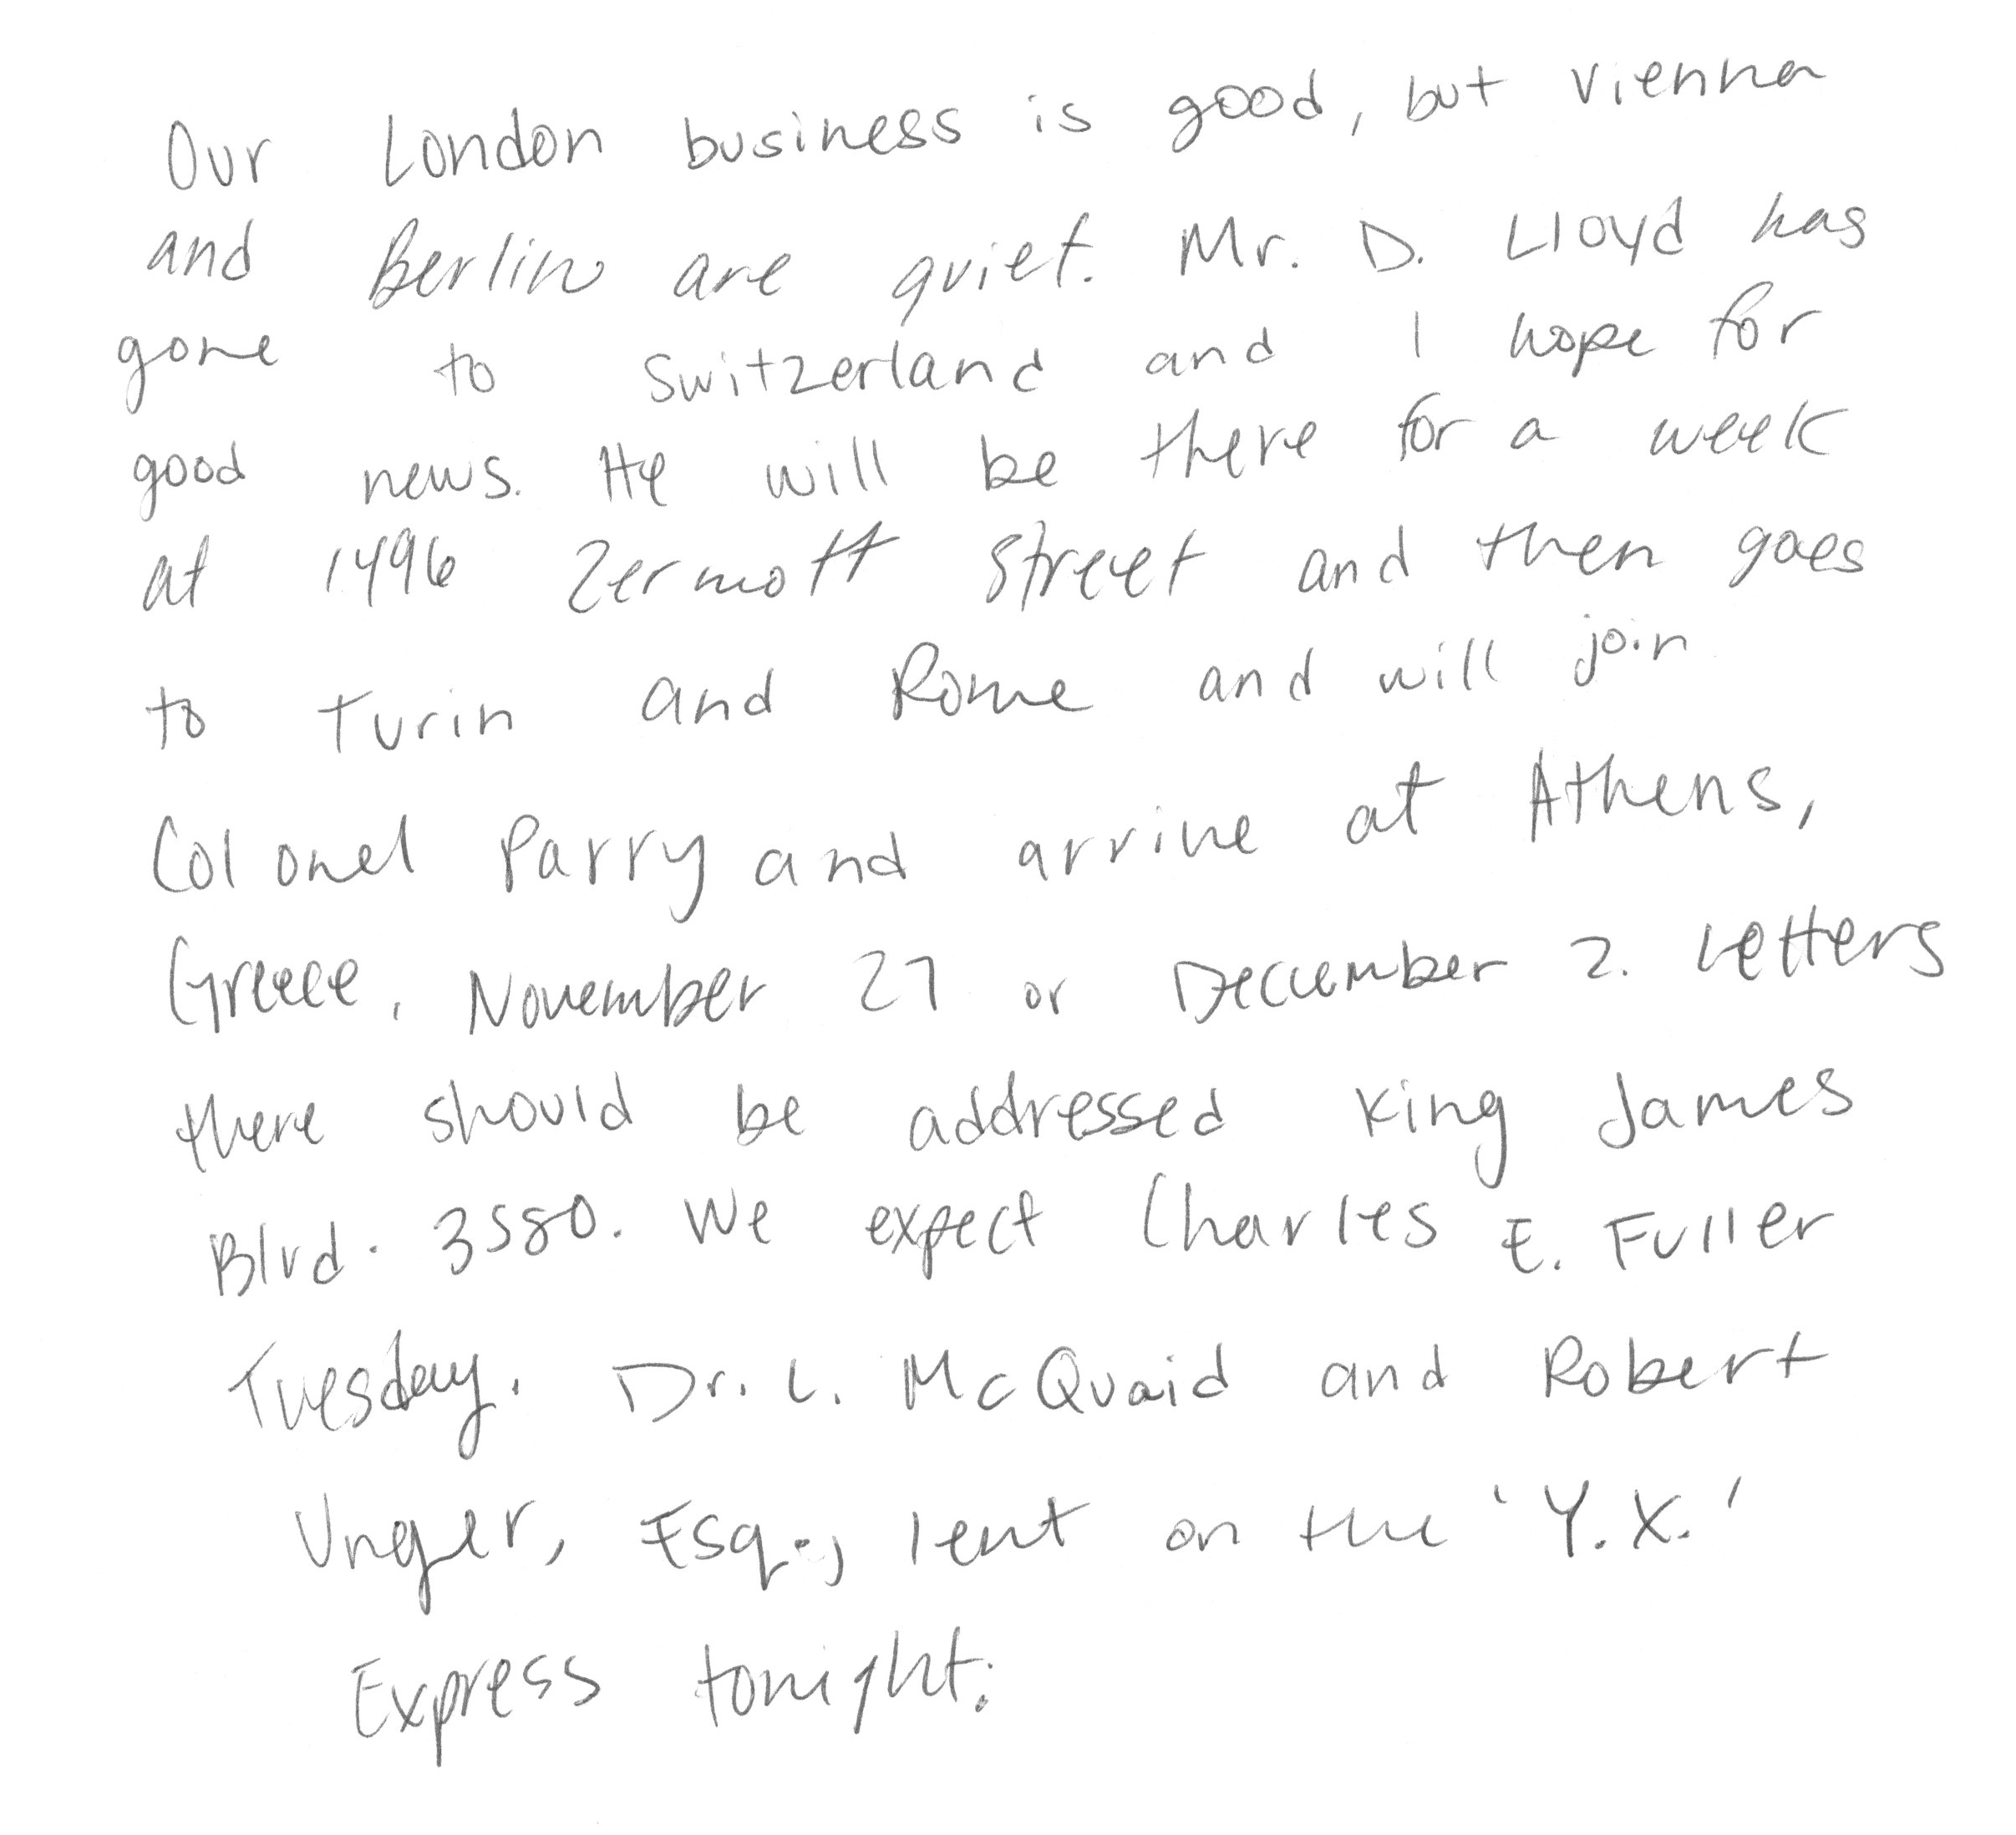 Our London business is good, but Vienna
and Berlin are quiet. Mr. D. Lloyd has
gone to Switzerland and I hope for
good news. He will be there for a week
at 1496 Zermott Street and then goes
to Turin and Rome and will join
Colonel Parry and arrive at Athens,
Greece, November 27 or December 2. Letters
there should be addressed King James
Blvd. 3580. We expect Charles E. Fuller
Tuesday. Dr. L. McQuaid and Robert
Unger, Esq., lent on the 'Y.X.'
Express tonight.